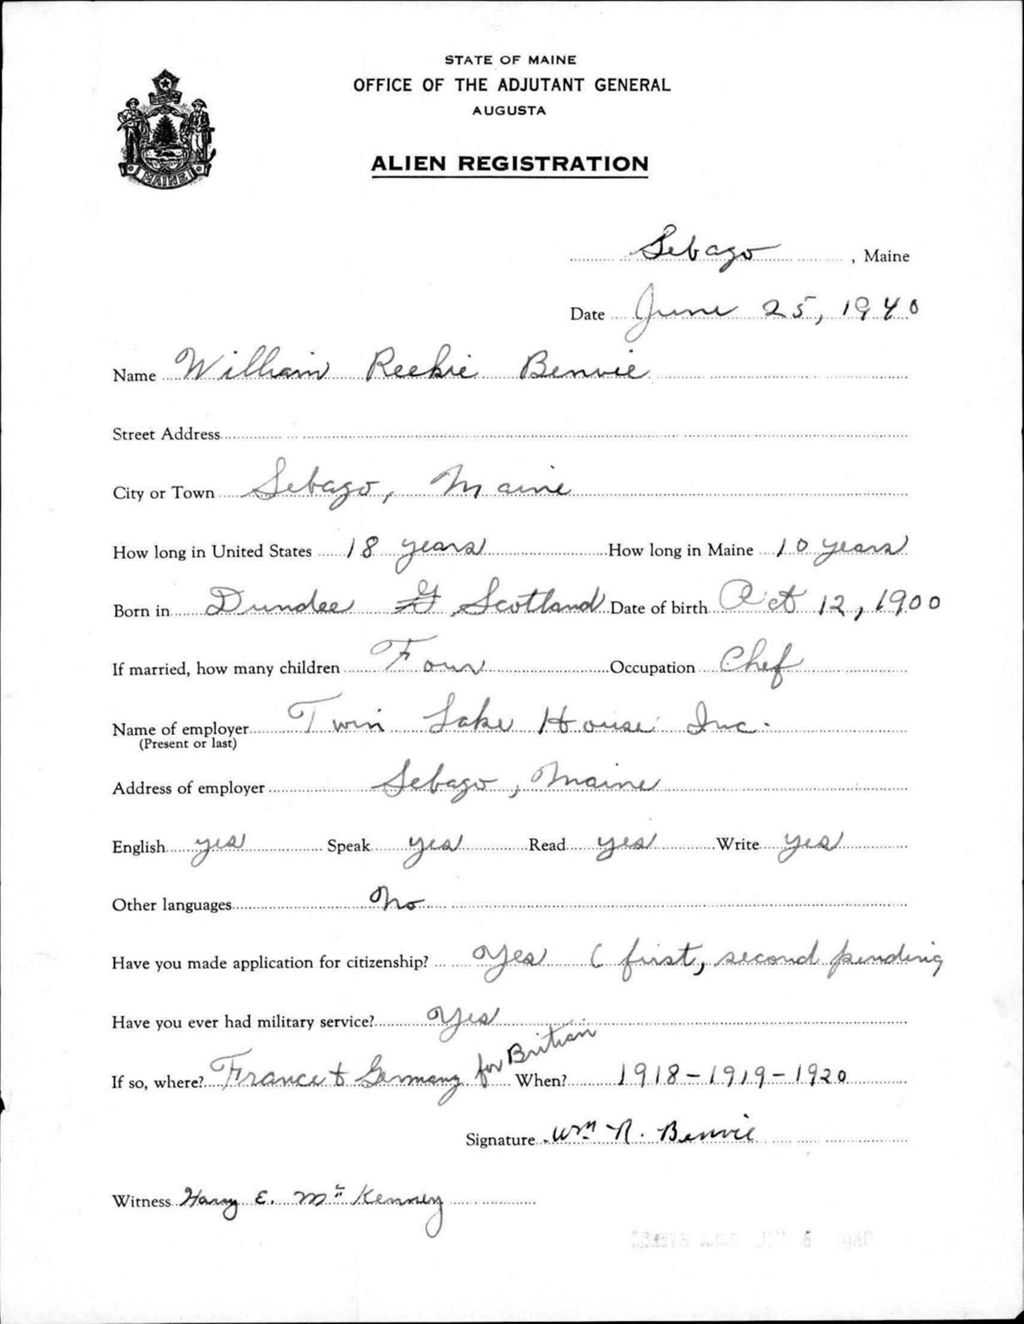 STATE OF MAINE
OFFICE OF THE ADJUTANT GENERAL
AUGUSTA
ALIEN REGISTRATION
MAINE
Sebago, Maine
Date June 25, 1940
Name William Reekie Benvie
Street Address
City or Town Sebago, Maine
How long in United States 18 years How long in Maine 10 years
Born in Dundee Scotland Date of birth Oct 12, 1900
If married, how many children Four Occupation Chef
Name of employer Twin Lake House Inc.
(Present or last)
Address of employer Sebago, Maine
English yes Speak yes Read yes Write yes
Other languages No
Have you made application for citizenship? Yes ( first, second pending
Have you ever had military service? Yes
If so, where? France & Germany for Britian When? 1918-1919-1920
Signature Wm R. Benvie
Witness Harry E. Mc Kenney